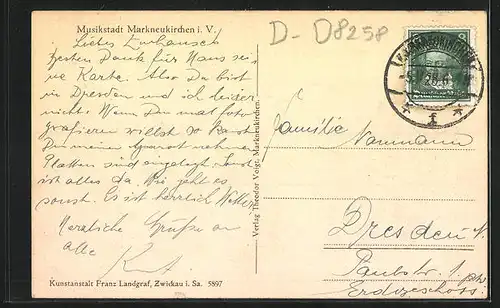 Musikstadt Markneukirchen i. V.
D- D8258
MARKNEUKIRCHEN
Liebes
besten Dank für
ne Karte. Also Du bist
in Dresden und ich leider
nicht. Wenn Du mal foto
grafieren willst so kannst
Du meinen Aparat nehmen
Platten sind eingelegt. Sonst
ist alles da. Wie geht es
sonst. Es ist herrlich Wetter.
Herzliche Grüße an
alle
Kurt
Verlag Theodor Voigt, Markneukirchen.
Familie Naumann
Dresden
Paulstr. 1
Erdgeschoss
Kunstanstalt Franz Landgraf, Zwickau i. Sa. 5897